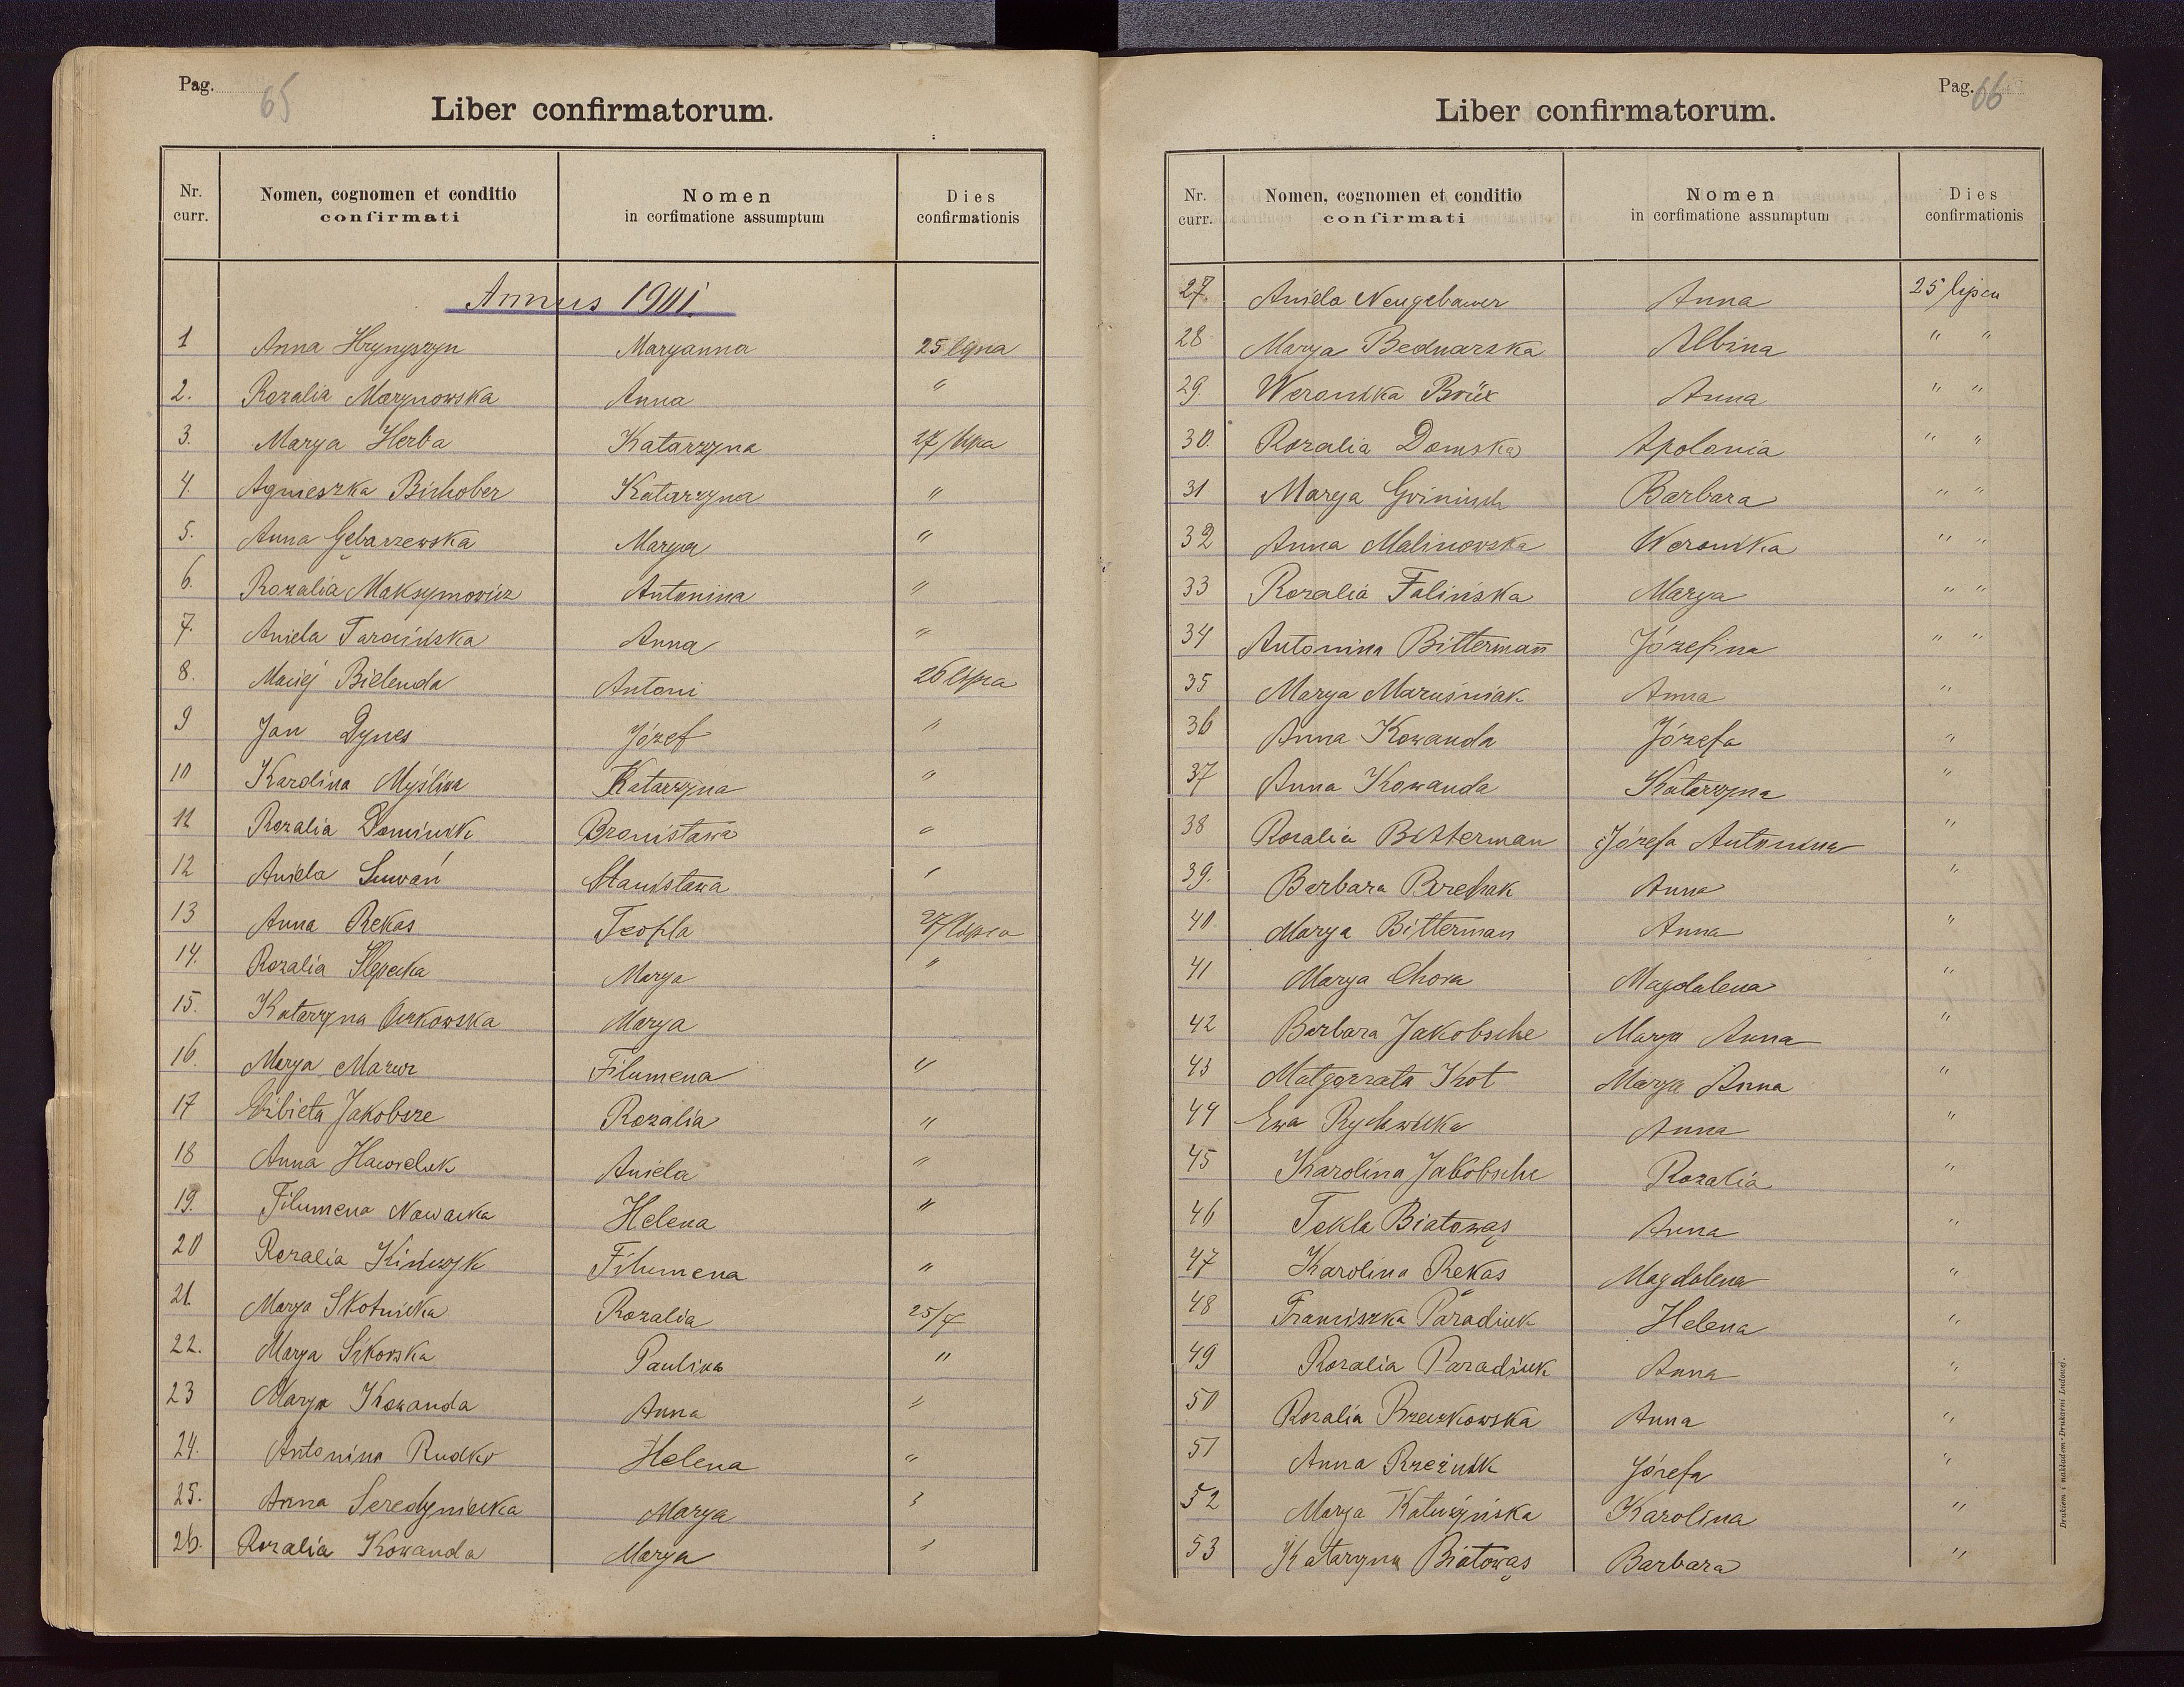 Pag. 65
Liber confirmatorum.
Nr. curr. Nomen, cognomen et conditio confirmati Nomen in corfimatione assumptum Dies confirmationis
Annus 1901.
1 Anna Hrynyszyn Maryanna 25 lipca
2. Rozalia Marynowska Anna "
3. Marya Herba Katarzyna 27/lipca
4. Agnieszka Birhober Katarzyna "
5. Anna Gębarzewska Marya "
6. Rozalia Maksymowicz Antonina "
7. Aniela Tarasińska Anna "
8. Maciej Bielenda Antoni 26 lipca
9 Jan Dynes Józef "
10 Karolina Myślina Katarzyna "
11 Rozalia Dominik Bronisława "
12 Aniela Stanisława "
13 Anna Rekas Teofla 27/lipca
14. Rozalia Ślepecka Marya "
15. Katarzyna Marya
16. Marya Mazur Filumena "
17 Elżbieta Jakobsze Rozalia "
18 Anna Hawreluk Aniela "
19. Filumena Nowacka Helena "
20 Rozalia Kińczyk Filumena "
21. Marya Skotnicka Rozalia 25/7
22. Marya Sikorska Paulina "
23 Marya Kowanda Anna "
24. Antonina Rudko Helena "
25. Anna Seredyniecka Marya "
26. Rozalia Kowanda Marya "
Pag. 66
Liber confirmatorum.
Nr. curr. Nomen, cognomen et conditio confirmati Nomen in corfimatione assumptum Dies confirmationis
27. Aniela Neugebauer Anna 25 lipca
28 Marya Bednarska Albina " "
29. Weronika Brüx Anna " "
30. Rozalia Domska Apolonia " "
31 Marya Barbara " "
32 Anna Malinowska Weronika " "
33 Rozalia Falińska Marya " "
34 Antonina Bittermann Józefina " "
35 Marya Maruśniak Anna "
36 Anna Kowanda Józefa "
37 Anna Kowanda Katarzyna "
38 Rozalia Bitterman Józefa Antonina "
39. Barbara Anna "
40 Marya Bitterman Anna "
41 Marya Chora Magdalena "
42 Barbara Jakobsche Marya Anna "
43 Małgorzata Kot Marya Anna "
44 Ewa Rychwicka Anna "
45 Karolina Jakobsche Rozalia "
46 Tekla Białowąs Anna "
47 Karolina Rekas Magdalena "
48 Franciszka Paradiuk Helena "
49 Rozalia Paradiuk Anna "
50 Rozalia Brzezkowska Anna "
51 Anna Rzeźnik Józefa "
52 Marya Katużyńska Karolina "
53 Kataryna Białowąs Barbara "
Drukiem i nakładem Drukarni Ludowej.